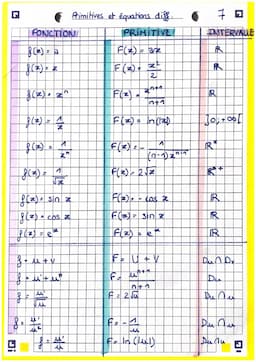 Primitives et équations diff. 7
FONCTION PRIMITIVE INTERVALLE
f(x) = a F(x) = ax ℝ
f(x) = x F(x) = x²/2 ℝ
f(x) = xⁿ F(x) = xⁿ⁺¹/n+1 ℝ
f(x) = 1/x F(x) = ln(x) ]0,+∞[
f(x) = 1/xⁿ F(x) = - 1/(n-1)xⁿ⁻¹ ℝ*
f(x) = 1/√x F(x) = 2√x ℝ*+
f(x) = sin x F(x) = - cos x ℝ
f(x) = cos x F(x) = sin x ℝ
f(x) = eˣ F(x) = eˣ ℝ
f = u + v F = U + V Du ∩ Dv
f = u' × uⁿ F = uⁿ⁺¹/n+1 Du
f = u'/√u F = 2√u Du ∩ u
f = u'/u² F = - 1/u Du ∩ u
f = u'/u F = ln(|u|) Du ∩ u